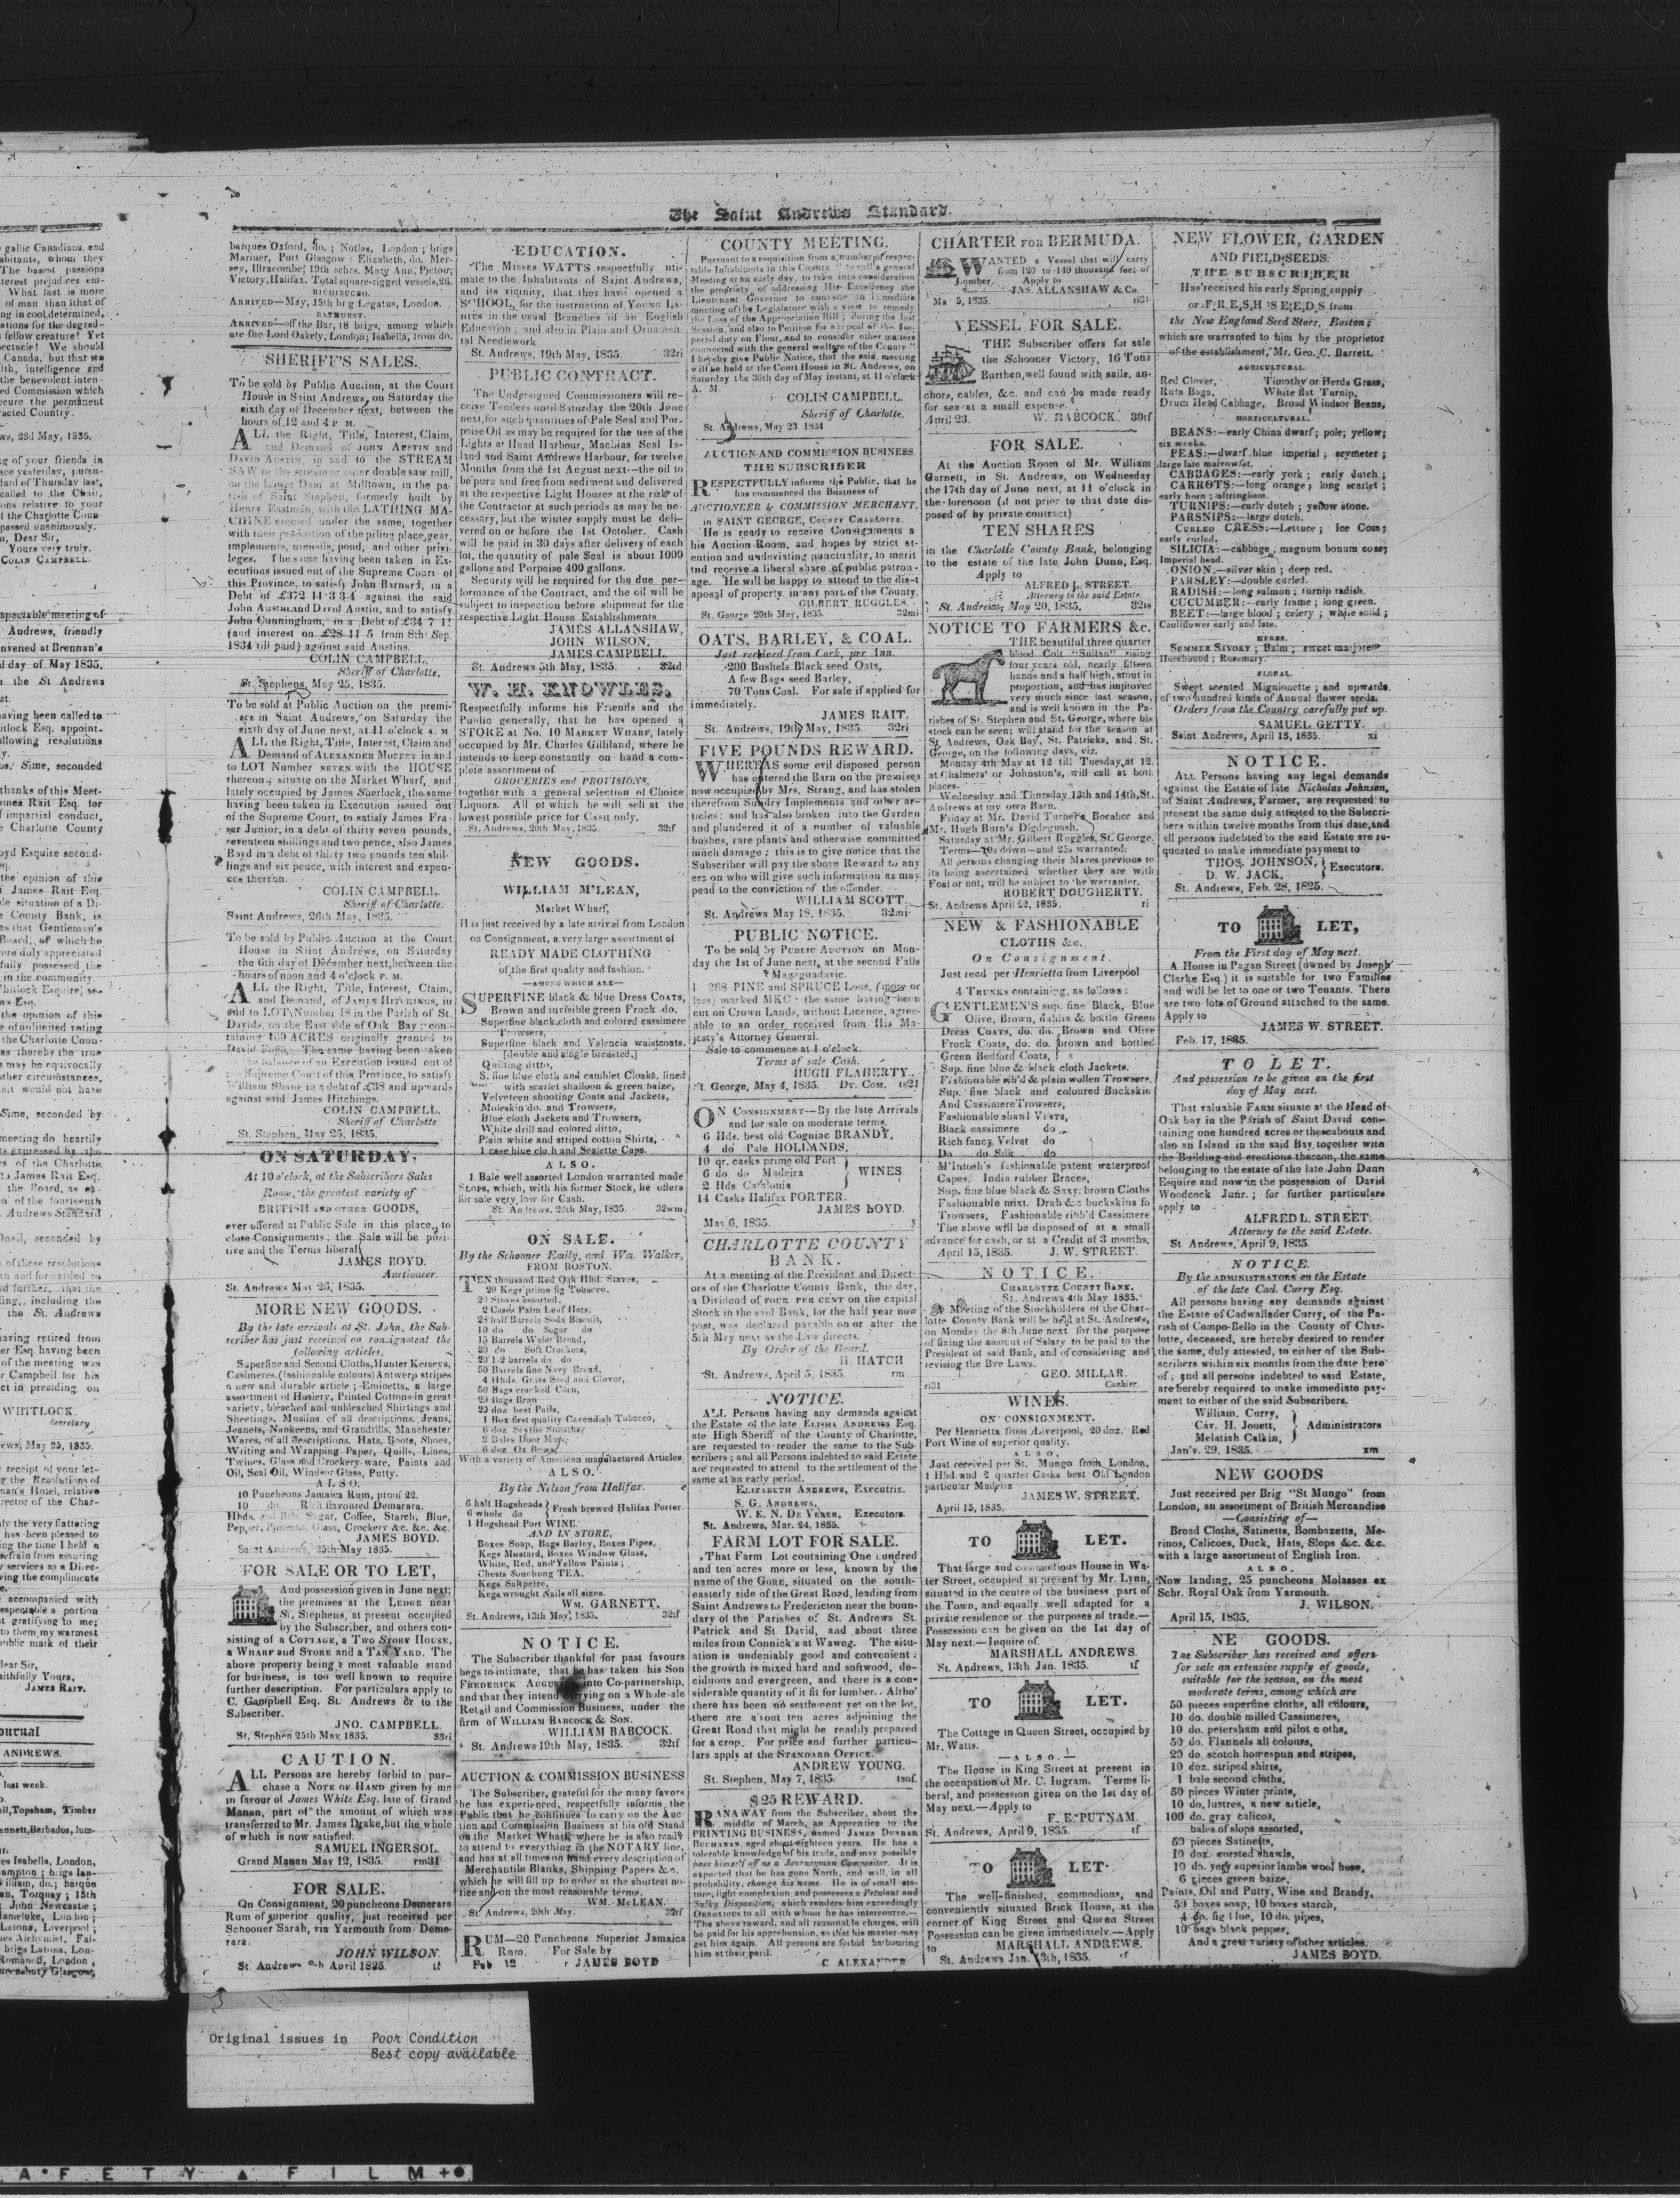 The Saint Andrews Standard.
barques Oxford, do. ; Notlas, London ; brigs
Mariner, Port Glasgow ; Elizabeth, do. Mer-
sey, Ilfracombe; 19th schrs. Mary Ann, Pictou;
Victory, Halifax. Total square-rigged vessels, 26.
RICHIBUCTO.
ARRIVED—May, 15th brg Legatus, London.
BATHURST.
ARRIVED—off the Bar, 18 brigs, among which
are the Lord Oakely, London; Isabella, from do.
SHERIFF'S SALES.
To be sold by Public Auction, at the Court
House in Saint Andrews, on Saturday the
sixth day of December next, between the
hours of 12 and 4 P M.
ALL the Right, Title, Interest, Claim,
and Demand of JOHN AUSTIN and
DAVID AUSTIN, in and to the STREAM
SAW in the stream or outer double saw mill,
on the Lower Dam at Milltown, in the pa-
rish of Saint Stephen, formerly built by
Henry Eastman, with the LATHING MA-
CHINE erected under the same, together
with their proportion of the piling place, gear,
implements, utensils, pond, and other privi-
leges. The same having been taken in Ex-
ecutions issued out of the Supreme Court of
this Province, to satisfy John Barnard, in a
Debt of £372 14 3 3-4 against the said
John Austin and David Austin, and to satisfy
John Cunningham, in a Debt of £34 7 11
(and interest on £28 11 5 from 8th Sep.
1834 till paid) against said Austins.
COLIN CAMPBELL,
Sheriff of Charlotte.
St. Stephens, May 25, 1835.
To be sold at Public Auction on the premi-
ses in Saint Andrews, on Saturday the
sixth day of June next, at 11 o'clock A. M
ALL the Right, Title, Interest, Claim and
Demand of ALEXANDER MOFFET in and
to LOT Number SEVEN with the HOUSE
thereon, situate on the Market Wharf, and
lately occupied by James Sherlock, the same
having been taken in Execution issued out
of the Supreme Court, to satisfy James Fra-
ser Junior, in a debt of thirty seven pounds,
seventeen shillings and two pence, also James
Boyd in a debt of thirty two pounds ten shil-
lings and six pence, with interest and expen-
ces thereon.
COLIN CAMPBELL.
Sheriff of Charlotte.
Saint Andrews, 26th May, 1835.
To be sold by Public Auction at the Court
House in Saint Andrews, on Saturday
the 6th day of December next, between the
hours of noon and 4 o'clock P. M.
ALL the Right, Title, Interest, Claim,
and Demand, of JAMES HITCHINGS, in
and to LOT Number 48 in the Parish of St.
Davids, on the East side of Oak Bay ; con-
taining 100 ACRES originally granted to
David The same having been taken
the balance of an Execution issued out of
Supreme Court of this Province, to satisfy
William Shane in a debt of £38 and upwards
against said James Hitchings.
COLIN CAMPBELL,
Sheriff of Charlotte
St. Stephen, May 25, 1835.
ON SATURDAY,
At 10 o'clock, at the Subscribers Sales
Room, the greatest variety of
BRITISH AND OTHER GOODS,
ever offered at Public Sale in this place, to
close Consignments ; the Sale will be posi-
tive and the Terms liberal.
JAMES BOYD.
Auctioneer.
St. Andrews May 26, 1835.
MORE NEW GOODS.
By the late arrivals at St. John, the Sub-
scriber has just received on consignment the
following articles.
Superfine and Second Cloths, Hunter Kerseys,
Casimeres, (fashionable colours) Antwerp stripes
a new and durable article ; Eminetts, a large
assortment of Hosiery, Printed Cottons in great
variety, bleached and unbleached Shirtings and
Sheetings, Muslins of all descriptions, Jeans,
Jeanets, Nankeens, and Grandrills, Manchester
Wares, of all descriptions, Hats, Boots, Shoes,
Writing and Wrapping Paper, Quills, Lines,
Twines, Glass and Crockery ware, Paints and
Oil, Seal Oil, Windsor Glass, Putty.
ALSO,
10 Puncheons Jamaica Rum, proof 22.
10 do. Rich flavoured Demarara,
Hhds. and Brls. Sugar, Coffee, Starch, Blue,
Pepper, Pimento, Glass, Crockery &c. &c. &c.
JAMES BOYD.
Saint Andrews, 25th May 1835.
FOR SALE OR TO LET,
And possession given in June next;
the premises at the LEDGE near
St. Stephens, at present occupied
by the Subscriber, and others con-
sisting of a COTTAGE, a TWO STORY HOUSE,
a WHARF and STORE and a TAN YARD. The
above property being a most valuable stand
for business, is too well known to require
further description. For particulars apply to
C. Campbell Esq. St. Andrews or to the
Subscriber.
JNO. CAMPBELL.
St. Stephen 25th May, 1835. 33ri
CAUTION.
ALL Persons are hereby forbid to pur-
chase a NOTE OF HAND given by me
in favour of James White Esq. late of Grand
Manan, part of the amount of which was
transferred to Mr. James Drake, but the whole
of which is now satisfied.
SAMUEL INGERSOL.
Grand Manan May 12, 1835. rm31
FOR SALE.
On Consignment, 20 puncheons Demerara
Rum of superior quality, just received per
Schooner Sarah, via Yarmouth from Deme-
rara.
JOHN WILSON.
St. Andrews 8th April 1835. tf
EDUCATION.
The MISSES WATTS respectfully inti-
mate to the Inhabitants of Saint Andrews,
and its vicinity, that they have opened a
SCHOOL, for the instruction of YOUNG LA-
DIES in the usual Branches of an English
Education ; and also in Plain and Ornamen-
tal Needlework
St. Andrews, 19th May, 1835. 32ri
PUBLIC CONTRACT.
The Undersigned Commissioners will re-
ceive Tenders until Saturday the 20th June
next, for such quantities of Pale Seal and Por-
poise Oil as may be required for the use of the
Lights at Head Harbour, Machias Seal Is-
land and Saint Andrews Harbour, for twelve
Months from the 1st August next—the oil to
be pure and free from sediment and delivered
at the respective Light Houses at the risk of
the Contractor at such periods as may be ne-
cessary, but the winter supply must be deli-
vered on or before the 1st October. Cash
will be paid in 30 days after delivery of each
lot, the quantity of pale Seal is about 1000
gallons and Porpoise 400 gallons.
Security will be required for the due per-
formance of the Contract, and the oil will be
subject to inspection before shipment for the
respective Light House Establishments
JAMES ALLANSHAW,
JOHN WILSON,
JAMES CAMPBELL.
St. Andrews 5th May, 1835. 32td
W. H. KNOWLES,
Respectfully informs his Friends and the
Public generally, that he has opened a
STORE at No. 10 MARKET WHARF, lately
occupied by Mr. Charles Gilliland, where he
intends to keep constantly on hand a com-
plete assortment of
GROCERIES and PROVISIONS,
together with a general selection of Choice
Liquors. All of which he will sell at the
lowest possible price for CASH only.
St. Andrews, 20th May, 1835. 32tf
NEW GOODS.
WILLIAM M'LEAN,
Market Wharf,
Has just received by a late arrival from London
on Consignment, a very large assortment of
READY MADE CLOTHING
of the first quality and fashion.
—AMONG WHICH ARE—
SUPERFINE black & blue Dress COATS,
Brown and invisible green Frock do.
Superfine black cloth and colored cassimere
Trowsers,
Superfine black and Valencia waistcoats.
[double and single breasted.]
Quilting ditto,
S. fine blue cloth and camblet Cloaks, lined
with scarlet shalloon & green baize,
Velveteen shooting Coats and Jackets,
Moleskin do. and Trowsers,
Blue cloth Jackets and Trowsers,
White drill and colored ditto,
Plain white and striped cotton Shirts,
1 case blue cloth and Sealette Caps.
ALSO.
1 Bale well assorted London warranted made
SLOPS, which, with his former Stock, he offers
for sale very low for Cash.
St. Andrews, 20th May, 1835. 32wm
ON SALE.
By the Schooner Emily, and Wm. Walker,
FROM BOSTON.
TEN thousand Red Oak Hhd. Staves,
20 Kegs prime fig Tobacco,
20 Stoves assorted,
2 Cases Palm Leaf Hats,
28 half Barrels Soda Biscuit,
10 do do Sugar do
15 Barrels Water Bread,
20 do Soft Crackers,
20 1-2 barrels do do
50 Barrels fine Navy Bread,
4 Hhds. Grass Seed and Clover,
50 Bags cracked Corn,
20 Bags Bran
20 doz best Pails,
1 Box first quality Cavendish Tobacco,
6 doz Scythe Sneaths,
2 Bales Door Maps,
6 doz. Ox Bows,
With a variety of American manufactured Articles
ALSO.
By the Nelson from Halifax.
6 half Hogsheads } Fresh brewed Halifax Porter
6 whole do
1 Hogshead Port WINE.
AND IN STORE,
Boxes Soap, Bags Barley, Boxes Pipes,
Kegs Mustard, Boxes Window Glass,
White, Red, and Yellow Paints ;
Chests Souchong TEA.
Kegs Saltpetre,
Kegs wrought Nails all sizes.
WM. GARNETT.
St. Andrews, 13th May, 1835. 32tf
NOTICE.
The Subscriber thankful for past favours
begs to intimate, that he has taken his Son
FREDERICK into Co-partnership,
and that they intend carrying on a Whole-sale
Retail and Commission Business, under the
firm of WILLIAM BABCOCK & SON.
WILLIAM BABCOCK.
St. Andrews 19th May, 1835. 32tf
AUCTION & COMMISSION BUSINESS
The Subscriber, grateful for the many favors
he has experienced, respectfully informs the
Public that he continues to carry on the Auc-
tion and Commission Business at his old Stand
on the Market Wharf, where he is also ready
to attend to everything in the NOTARY line,
and has at all times on hand every description of
Merchantile Blanks, Shipping Papers &c.
which he will fill up to order at the shortest no-
tice and on the most reasonable terms.
WM. McLEAN.
St. Andrews, 20th May. 32tf
RUM—20 Puncheons Superior Jamaica
Rum. For Sale by
Feb 12 JAMES BOYD
COUNTY MEETING.
Pursuant to a requisition from a number of respec-
table Inhabitants in this County "to call a general
Meeting at an early day, to take into consideration
the propriety, of addressing His Excellency the
Lieutenant Governor to convene an immediate
meeting of the Legislature with a view to remedy
the Loss of the Appropriation Bill ; during the last
Session, and also to Petition for a repeal of the Im-
perial duty on Flour, and to consider other matters
connected with the general welfare of the County"
I hereby give Public Notice, that the said meeting
will be held at the Court House in St. Andrews, on
Saturday the 30th day of May instant, at 11 o'clock
A. M.
COLIN CAMPBELL.
Sheriff of Charlotte.
St. Andrews, May 23 1834
AUCTION AND COMMISSION BUSINESS.
THE SUBSCRIBER
RESPECTFULLY informs the Public, that he
has commenced the Business of
AUCTIONEER & COMMISSION MERCHANT,
in SAINT GEORGE, COUNTY CHARLOTTE.
He is ready to receive Consignments a
his Auction Room, and hopes by strict at-
ention and undeviating punctuality, to merit
and receive a liberal share of public patron-
age. He will be happy to attend to the dis-t
aposal of property in any part of the County.
GILBERT RUGGLES.
St. George 20th May, 1835. 32mi
OATS, BARLEY, & COAL.
Just received from Cork, per Ann.
200 Bushels Black seed Oats,
A few Bags seed Barley,
70 Tons Coal. For sale if applied for
immediately.
JAMES RAIT.
St. Andrews, 19th May, 1835. 32ri
FIVE POUNDS REWARD.
WHEREAS some evil disposed person
has entered the Barn on the premises
now occupied by Mrs. Strang, and has stolen
therefrom Sundry Implements and other ar-
ticles : and has also broken into the Garden
and plundered it of a number of valuable
bushes, rare plants and otherwise committed
much damage ; this is to give notice that the
Subscriber will pay the above Reward to any
ers on who will give such information as may
pead to the conviction of the offender.
WILLIAM SCOTT.
St. Andrews May 18, 1835. 32mi
PUBLIC NOTICE.
To be sold by PUBLIC AUCTION on Mon-
day the 1st of June next, at the second Falls
Magaguadavic.
1 268 PINE and SPRUCE LOGS, (more or
less) marked MKC ; the same having been
cut on Crown Lands, without Licence, agree-
able to an order received from His Ma-
jesty's Attorney General.
Sale to commence at 1 o'clock.
Terms of sale Cash.
HUGH FLAHERTY.
St George, May 4, 1835. DY. COM. ts21
ON CONSIGNMENT—By the late Arrivals
and for sale on moderate terms.
6 Hds. best old Cogniac BRANDY,
4 do Pale HOLLANDS.
10 qr. casks prime old Port
6 do do Madeira } WINES
2 Hds Catalonia
14 Casks Halifax PORTER.
JAMES BOYD.
May 6, 1835. y
CHARLOTTE COUNTY
BANK.
At a meeting of the President and Direct-
ors of the Charlotte County Bank, this day,
a Dividend of FOUR PER CENT on the capital
Stock in the said Bank, for the half year now
past, was declared payable on or after the
5th May next as the Law directs.
By Order of the Board.
H. HATCH
St. Andrews, April 5, 1835. rm
NOTICE.
ALL Persons having any demands against
the Estate of the late ELISHA ANDREWS Esq.
ate High Sheriff of the County of Charlotte,
are requested to render the same to the Sub-
scribers ; and all Persons indebted to said Estate
are requested to attend to the settlement of the
same at an early period.
ELIZABETH ANDREWS, Executrix.
S. G. ANDREWS,
W. E. N. DE VEBER, Executors.
St. Andrews, Mar. 24, 1835.
FARM LOT FOR SALE.
That Farm Lot containing One hundred
and ten acres more or less, known by the
name of the GORE, situated on the south-
easterly side of the Great Road, leading from
Saint Andrews to Fredericton near the boun-
dary of the Parishes of St. Andrews St.
Patrick and St. David, and about three
miles from Connick's at Waweg. The situ-
ation is undeniably good and convenient :
the growth is mixed hard and softwood, de-
ciduous and evergreen, and there is a con-
siderable quantity of it fit for lumber. Altho'
there has been no settlement yet on the lot,
there are about ten acres adjoining the
Great Road that might be readily prepared
for a crop. For price and further particu-
lars apply at the STANDARD OFFICE.
ANDREW YOUNG.
St. Stephen, May 7, 1835. tsof.
$25 REWARD.
RANAWAY from the Subscriber, about the
middle of March, an Apprentice to the
PRINTING BUSINESS, named JAMES DUNBAR
BUCHANAN, aged about eighteen years. He has a
tolerable knowledge of his trade, and may possibly
pass himself off as a Journeyman Compositor. It is
expected that he has gone North, and will, in all
probability, change his name. He is of small sta-
ture, light complexion and possesses a Petulant and
Sulky Disposition, which renders him exceedingly
OBNOXIOUS to all with whom he has intercourse.—
The above reward, and all reasonable charges, will
be paid for his apprehension, so that his master may
get him again. All persons are forbid harbouring
him at their peril.
C. ALEXANDER
CHARTER FOR BERMUDA.
WANTED a Vessel that will carry
from 120 to 140 thousand feet of
Lumber. Apply to
JAS. ALLANSHAW & Co.
Ma 5, 1835. ri31
VESSEL FOR SALE.
THE Subscriber offers for sale
the Schooner Victory, 16 Tons
Burthen, well found with sails, an-
chors, cables, &c. and can be made ready
for sea at a small expense.
April 23. W. BABCOCK. 30tf
FOR SALE.
At the Auction Room of Mr. William
Garnett, in St. Andrews, on Wednesday
the 17th day of June next, at 11 o'clock in
the forenoon (if not prior to that date dis-
posed of by private contract)
TEN SHARES
in the Charlotte County Bank, belonging
to the estate of the late John Dunn, Esq.
Apply to
ALFRED L. STREET.
Attorney to the said Estate.
St. Andrews, May 20, 1835. 32is
NOTICE TO FARMERS &c.
THE beautiful three quarter
blood Colt "Sultan" rising
four years old, nearly fifteen
hands and a half high, stout in
proportion, and has improved
very much since last season,
and is well known in the Pa-
rishes of St. Stephen and St. George, where his
stock can be seen; will stand for the season at
St. Andrews, Oak Bay, St. Patricks, and St.
George, on the following days, viz.
Monday 4th May at 12 till Tuesday at 12.
at Chalmers' or Johnston's, will call at both
places.
Wednesday and Thursday 13th and 14th, St.
Andrews at my own Barn.
Friday at Mr. David Turner's Bocabec and
Mr. Hugh Burn's Digdeguash.
Saturday at Mr. Gilbert Ruggles, St. George.
Terms—10s down—and 25s warranted.
All persons changing their Mares previous to
its being ascertained whether they are with
Foal or not, will be subject to the warranter.
ROBERT DOUGHERTY.
St. Andrews April 22, 1835. ri
NEW & FASHIONABLE
CLOTHS &c.
On Consignment.
Just recd per Henrietta from Liverpool
4 TRUNKS containing, as follows :
GENTLEMEN'S sup. fine Black, Blue
Olive, Brown, dahlia & bottle Green
Dress COATS, do. do. Brown and Olive
Frock Coats, do. do. brown and bottled
Green Bedford Coats,
Sup. fine blue & black cloth Jackets.
Fashionable rib'd & plain wollen Trowsers.
Sup. fine black and coloured Buckskin
And Cassimere Trowsers,
Fashionable shawl VESTS,
Black cassimere do
Rich fancy Velvet do
Do do Silk do
M'Intosh's fashionable patent waterproof
Capes, India rubber Braces,
Sup. fine blue black & Saxy; brown Cloths
Fashionable mixt. Drab &c buckskins fo
Trowsers, Fashionable ribb'd Cassimere
The above will be disposed of at a small
advance for cash, or at a Credit of 3 months.
April 15, 1835. J. W. STREET.
NOTICE.
CHARLOTTE COUNTY BANK,
St. Andrews 4th May 1835.
A Meeting of the Stockholders of the Char-
lotte County Bank will be held at St. Andrews,
on Monday the 8th June next for the purpose
of fixing the amount of Salary to be paid to the
President of said Bank, and of considering and
revising the Bye Laws.
GEO. MILLAR.
ri31 Cashier.
WINES.
ON CONSIGNMENT.
Per Henrietta from Liverpool, 20 doz. Red
Port Wine of superior quality.
ALSO,
Just received per St. Mungo from London,
1 Hhd and 2 quarter Casks best Old London
particular Madeira
JAMES W. STREET.
April 15, 1835.
TO LET.
That large and commodious House in Wa-
ter Street, occupied at present by Mr. Lynn,
situated in the centre of the business part of
the Town, and equally well adapted for a
private residence or the purposes of trade.—
Possession can be given on the 1st day of
May next.—Inquire of.
MARSHALL ANDREWS.
St. Andrews, 13th Jan. 1835. tf
TO LET.
The Cottage in Queen Street, occupied by
Mr. Watts.
—ALSO.—
The House in King Street at present in
the occupation of Mr. C. Ingram. Terms li-
beral, and possession given on the 1st day of
May next.—Apply to
F. E. PUTNAM.
St. Andrews, April 9, 1835. tf
TO LET.
The well-finished, commodious, and
conveniently situated Brick House, at the
corner of King Street and Queen Street
Possession can be given immediately.—Apply
to
MARSHALL ANDREWS.
St. Andrews Jan. 13th, 1835. tf
NEW FLOWER, GARDEN
AND FIELD SEEDS.
THE SUBSCRIBER
Has received his early Spring supply
OF FRESH SEEDS from
the New England Seed Store, Boston;
which are warranted to him by the proprietor
of the establishment, Mr. Geo. C. Barrett.
AGRICULTURAL.
Red Clover, Timothy or Herds Grass,
Ruta Baga, White flat Turnip,
Drum Head Cabbage, Broad Windsor Beans,
HORTICULTURAL.
BEANS:—early China dwarf; pole; yellow;
six weeks.
PEAS:—dwarf blue imperial ; scymeter ;
large late marrowfat.
CABBAGES:—early york ; early dutch ;
CARROTS:—long orange ; long scarlet ;
early horn ; altringham.
TURNIPS:—early dutch ; yellow stone.
PARSNIPS:—large dutch.
CURLED CRESS:—Lettuce ; Ice Coss;
early curled.
SILICIA:—cabbage ; magnum bonum coss;
Imperial head.
ONION.—silver skin ; deep red.
PARSLEY:—double curled.
RADISH:—long salmon ; turnip radish.
CUCUMBER:—early frame ; long green.
BEET:—large blood ; celery ; white solid ;
Cauliflower early and late.
HERBS.
SUMMER SAVORY ; Balm ; sweet marjorem
Horehound ; Rosemary.
FLORAL.
Sweet scented Mignionette ; and upwards
of two hundred kinds of Annual flower seeds.
Orders from the Country carefully put up.
SAMUEL GETTY.
Saint Andrews, April 13, 1835. xi
NOTICE.
ALL Persons having any legal demands
against the Estate of late Nicholas Johnson,
of Saint Andrews, Farmer, are requested to
present the same duly attested to the Subscri-
bers within twelve months from this date, and
all persons indebted to the said Estate are re-
quested to make immediate payment to
THOS. JOHNSON, } Executors.
D. W. JACK,
St. Andrews, Feb. 28, 1825.
TO LET,
From the First day of May next.
A House in Pagan Street (owned by Joseph
Clarke Esq.) it is suitable for two Families
and will be let to one or two Tenants. There
are two lots of Ground attached to the same.
Apply to
JAMES W. STREET.
Feb. 17, 1835.
TO LET.
And possession to be given on the first
day of May next.
That valuable FARM situate at the Head of
Oak bay in the Parish of Saint David con-
taining one hundred acres or thereabouts and
also an Island in the said Bay together with
the Building and erections thereon, the same
belonging to the estate of the late John Dunn
Esquire and now in the possession of David
Woodcock Junr. ; for further particulars
apply to
ALFRED L. STREET.
Attorney to the said Estate.
St. Andrews, April 9, 1835.
NOTICE.
By the ADMINISTRATORS on the Estate
of the late Cad. Curry Esq.
All persons having any demands against
the Estate of Cadwallader Curry, of the Pa-
rish of Compo-Bello in the County of Char-
lotte, deceased, are hereby desired to render
the same, duly attested, to either of the Sub-
scribers within six months from the date here
of ; and all persons indebted to said Estate,
are hereby required to make immediate pay-
ment to either of the said Subscribers.
William. Curry,
Cav. H. Jouett, } Administrators
Melatiah Calkin,
Jan'y. 29, 1835. xm
NEW GOODS
Just received per Brig "St Mungo" from
London, an assortment of British Mercandise
—Consisting of—
Broad Cloths, Satinetts, Bombazetts, Me-
rinos, Calicoes, Duck, Hats, Slops &c. &c.
with a large assortment of English Iron.
ALSO.
Now landing, 25 puncheons Molasses ex
Schr. Royal Oak from Yarmouth.
J. WILSON.
April 15, 1835.
NE GOODS.
The Subscriber has received and offers
for sale an extensive supply of goods,
suitable for the season, on the most
moderate terms, among which are
50 pieces superfine cloths, all colours,
10 do. double milled Cassimeres,
10 do. petersham and pilot c oths,
50 do. Flannels all colours,
20 do. scotch homespun and stripes,
10 doz. striped shirts,
1 bale second cloths,
50 pieces Winter prints,
10 do. lustres, a new article,
100 do. gray calicos,
bales of slops assorted,
50 pieces Satinetts,
10 doz. worsted shawls,
10 do. very superior lambs wool hose,
6 pieces green baize,
Paints, Oil and Putty, Wine and Brandy,
50 boxes soap, 10 boxes starch,
4 do. fig blue, 10 do. pipes,
10 bags black pepper,
And a great variety of other articles.
JAMES BOYD.
Original issues in Poor Condition
Best copy available
SAFETY FILM